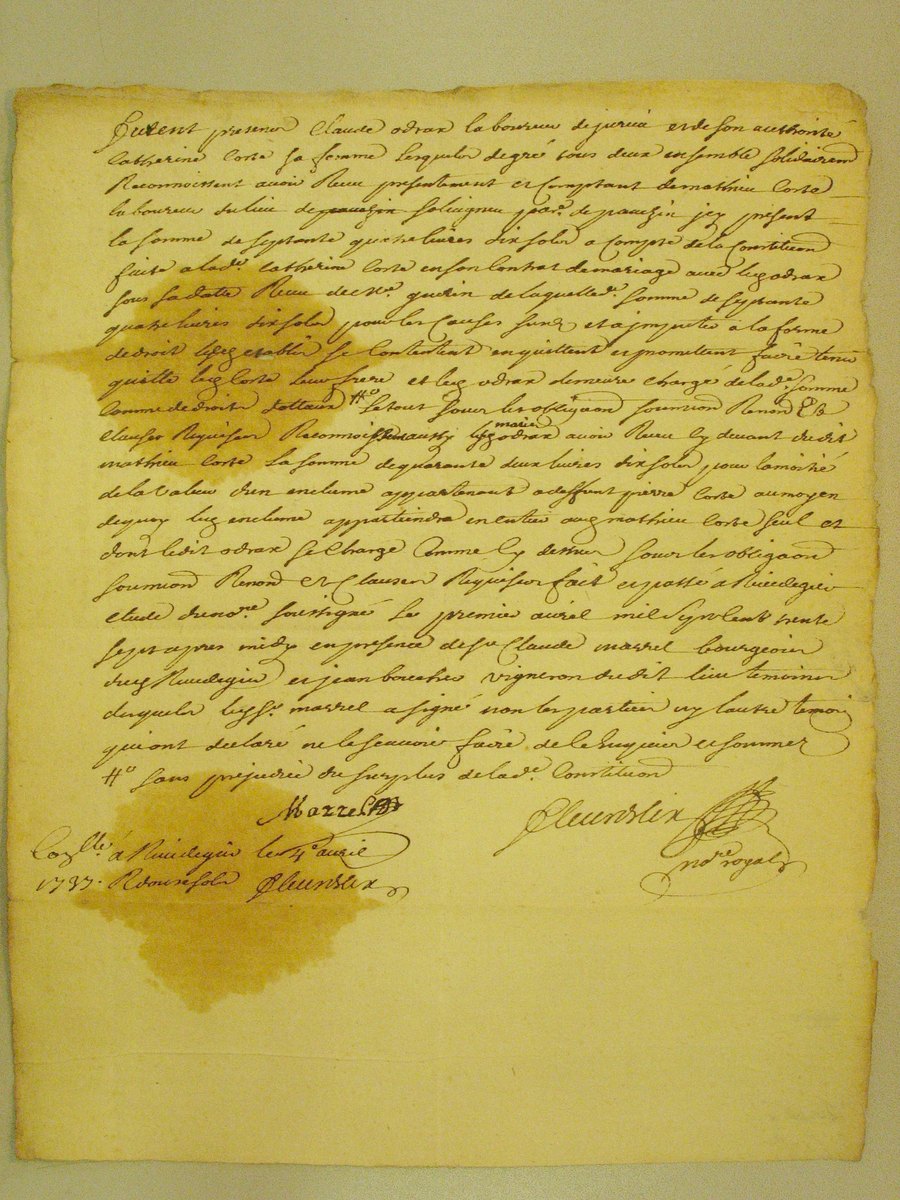 furent presens Claude odrax laboureur de jurieu et de son authorité
Catherine Corte sa femme lesquels de gré tous deux ensemble solidairem
Reconnoissent avoir Receu presentement et Comptant de mathieu Corte
laboureur du lieu de pauezin par. de pauezin icy present
la somme de septante quatre livres dix sols a Compte de la Constitution
faite a lad.e Catherine Corte en son Contrat de mariage avec led odrax
sous sa datte Receu de me. guerin de laquelle d. somme de septante
quatre livres dix sols pour les Causes susd et a imputer a la forme
de droit se Contentent en quittent et promettent faire tenir
quitte led Corte leur frere et led odrax demeure chargé de lad.e somme
Comme de droit #o le tout sous les obligaon soumion Renon & les
Clauses Requises Reconnoissent aussy lesd mariés odrax avoir Receu cy devant dudit
mathieu Corte la somme de quarante deux livres dix sols pour la moitié
de la valeur d'un enclume appartenant a deffunt pierre Corte au moyen
de quoy led enclume appartiendra en entier aud mathieu Corte seul et
dont ledit odrax se Charge Comme cy dessus sous les obligaon
soumion Renon et Clauses Requises fait et passé a Rivedegier
etude du nore. soussigné le premier avril mil sept Cent trente
sept apres midy en presence de sr Claude marrel bourgeois
dud Rivedegier et jean vigneron dudit lieu temoins
desquels led sr. marrel a signé non les parties ny lautre temoin
qui ont declaré ne le scavoir faire de ce enquis et sommés
#o sans prejudice du surplus de lad.e Constitution
Marrel
fleurdelix
nore royal
Con.llé a Rivedegier le 4e avril
1737. R douze sols fleurdelix